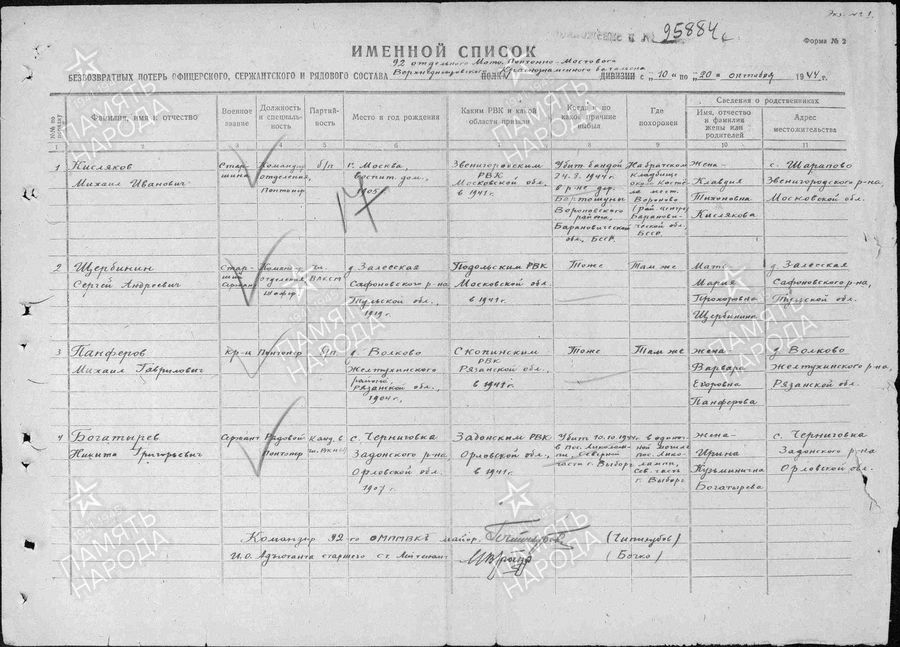 Экз. № 1.
95884с.
Форма № 2
ИМЕННОЙ СПИСОК
92 отдельного Мото Понтонно-Мостового
Верхнеднепровского Краснознаменного батальона
БЕЗВОЗВРАТНЫХ ПОТЕРЬ ОФИЦЕРСКОГО, СЕРЖАНТСКОГО И РЯДОВОГО СОСТАВА ПОЛКА ДИВИЗИИ с „10 и по „20" октября 1944 г.
№№ по порядку
Фамилия, имя и отчество
Военное звание
Должность и специальность
Партийность
Место и год рождения
Каким РВК и какой области призван
Когда и по какой причине выбыл
Где похоронен
Сведения о родственниках
Имя, отчество и фамилия жены или родителей
Адрес местожительства
1 2 4 5 6 7 8 9 10 11
1
Кисляков
Михаил Иванович
Стар-
шина
Командир
отделения,
Понтонер
б/п
г. Москва
воспит. дом.,
1905
17
Звенигородским
РВК
Московской обл,
в 1941 г.
Убит бандой
24.8.1944 г.
в р-не дер.
Бартошуны
Вороновского
района,
Барановической
обл, БССР
На братском
кладбище
около Косте-
ла мест.
Вороново
(рай центр)
Баранови-
ческой обл,
БССР
Жена-
Клавдия
Тихоновна
Кислякова
с. Шарапово
Звенигородского р-на,
Московской обл.
2
Щербинин
Сергей Андреевич
Стар-
ший
Сержант
Команд.
отделения
Шофер
чл.
ВЛКСМ
д Залесская
Сафоновского р-на
Тульской обл.,
1919 г.
Подольским РВК
Московской обл.
в 1941 г.
Тоже
Там же
Мать-
Мария
Прохоровна
Щербинина
д. Залесская
Сафоновского р-на,
Тульской обл.
3
Панферов
Михаил Гаврилович
Кр-ц
Понтонер
б/п
д Волково
Желтухинского
района,
Рязанской обл.,
1904 г,
Скопинским
РВК
Рязанской обл.,
в 1941 г.
Тоже
Там же
Жена-
Варвара
Егоровна
Панферова
д Волково
Желтухинского р-на,
Рязанской обл.
4
Богатырев
Никита Григорьевич
Сержант
Рядовой
Понтонер
Канд. в
чл. ВКП(б)
с. Черниговка
Задонского р-на
Орловской обл.
1907 г.
Задонским РВК
Орловской обл.,
в 1941 г.
Убит 10.10.1944 г.
в пос.
части г. Выборг
в одиноч-
ной могиле
пос.
сев. часть
г. Выборг
Жена-
Ирина
Кузьминична
Богатырева
с. Черниговка
Задонского р-на
Орловской обл.
Командир 92-го ОМПМВКБ майор
И.О. Адъютанта старшего ст. Лейтенант
(Бочко)
ПАМЯТЬ
НАРОДА
1941-1945